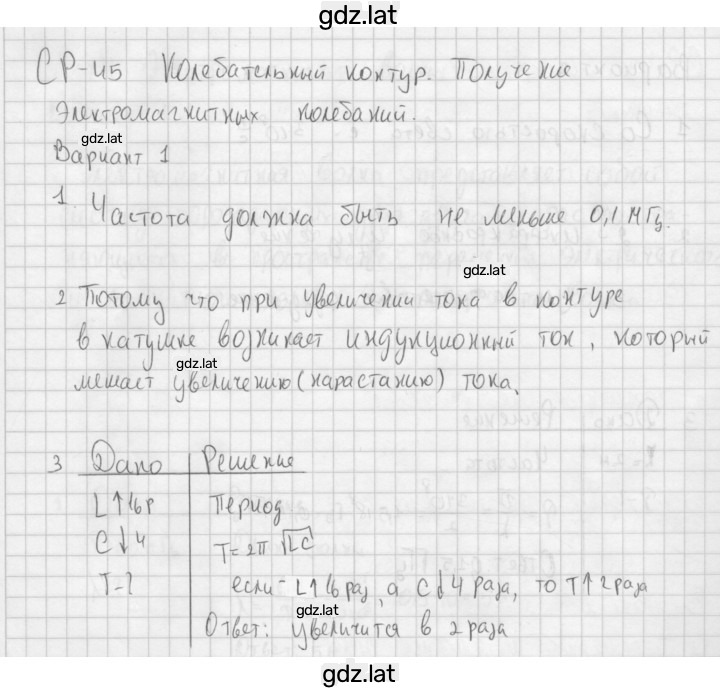 gdz.lat
СР-45 Колебательный контур. Получение
электромагнитных колебаний.
gdz.lat
Вариант 1
1. Частота должна быть не меньше 0,1 МГц.
gdz.lat
2 Потому что при увеличении тока в контуре
в катушке возникает индукционный ток, который
gdz.lat
мешает увеличению (нарастанию) тока.
3 Дано Решение
L↑16р Период
C↓4 T=2π√LC
T-? если L↑16 раз, а C↓4 раза, то T↑2 раза
gdz.lat
Ответ: увеличится в 2 раза
gdz.lat